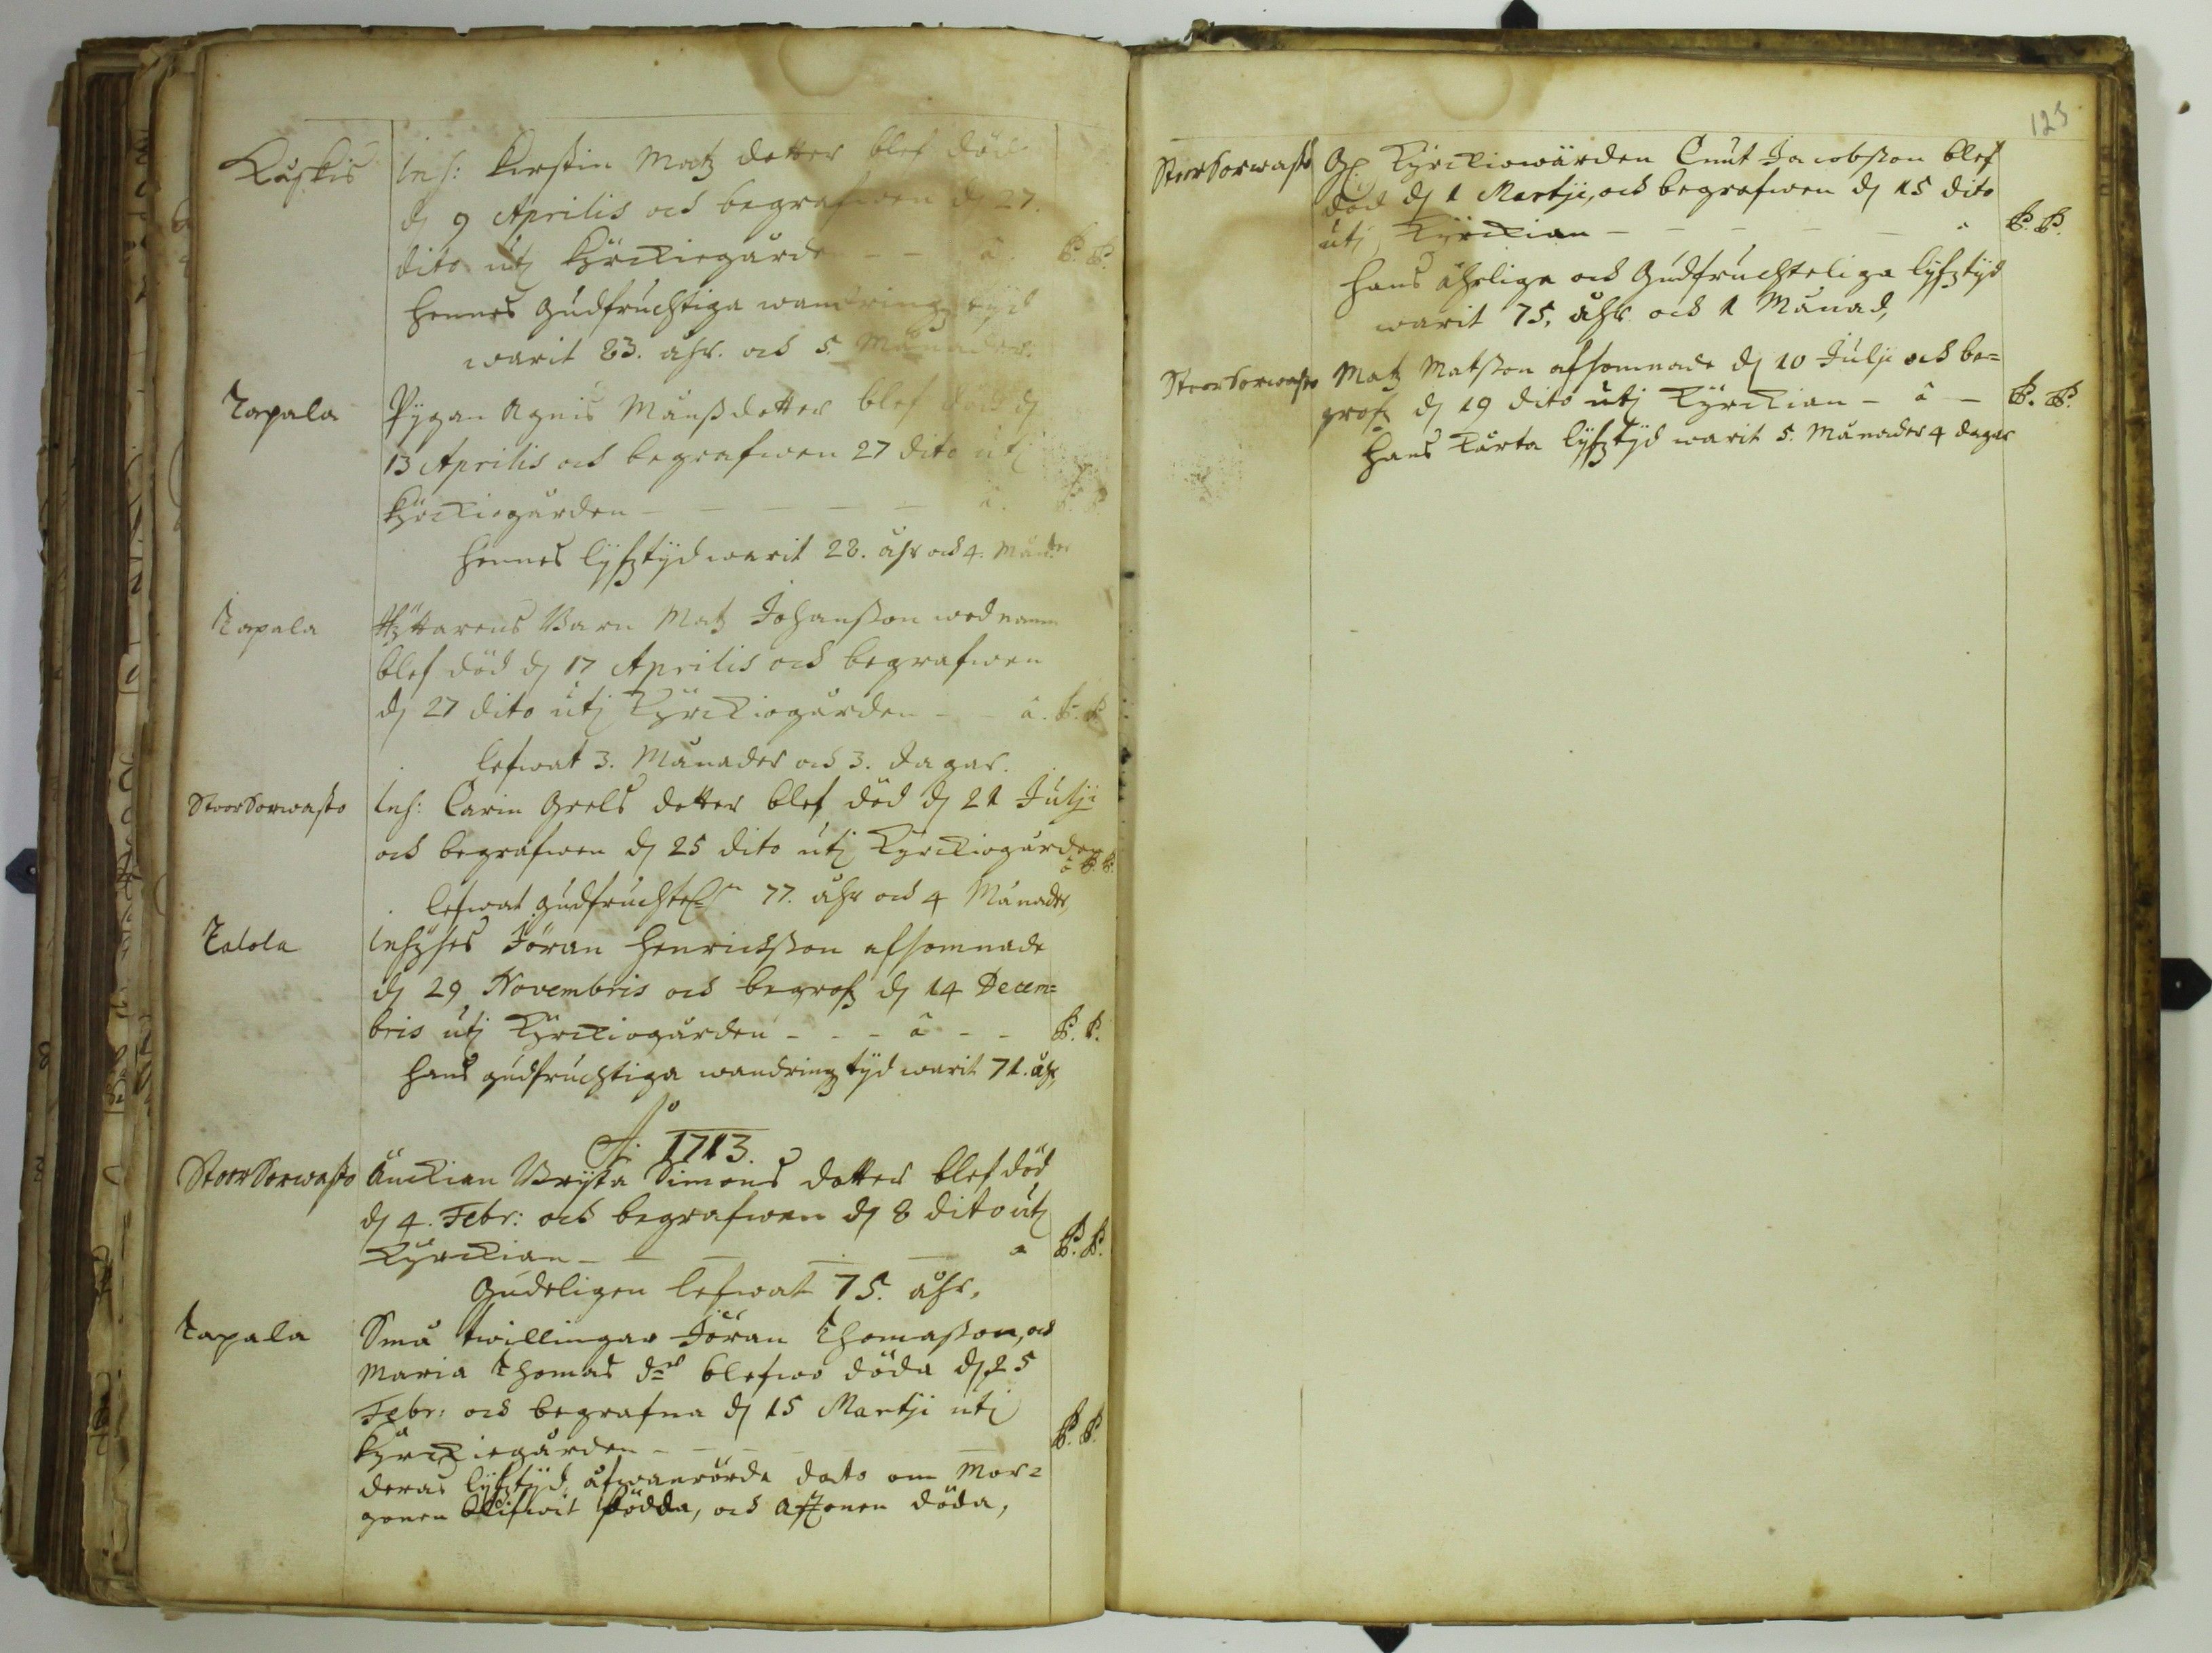 Kaskis
Inh: Kirstin Matz dotter blef död
dj 9 Aprilis och begrafwen dj 27.
dito utj Kyrckiogårde - - â. P. P.
hennes Gudfruchtiga wandringz tijd
warit 83. ahr. och 5. Månader.
Tapala
Pygan Agnis Månßdotter blef död dj
13 Aprilis och begrafwen 27 dito utj
Kyrckiogården - - - - - â. P. P.
hennes lijfztijd warit 28. åhr och 4. Månder
Tapala
Ryttarens Barn Matz Johanßon wed namn
blef död dj 17 Aprilis och begrafwen
dj 27 dito utj Kyrckiogården - - â. P. P.
lefwat 3. Månader och 3. dagar.
Stoor Sorwasto
Inh: Carin Grels dotter blef död dj 21 Julji
och begrafwen dj 25 dito utj Kyrckiogården
â P. P.
lefwat gudfruchtel:n 77. åhr och 4 Månader,
Talola
Inhyses Jöran Henrichßon afsomnade
dj 29 Novembris och begrofz dj 14 Decem=
bris utj Kyrckiogården - - - â - - P. P.
hans gudfruchtiga wandringz tijd warit 71. åhr,
Ao 1713.
Stoor Sorwasto
Änckian Brijta Simons dotter blef död
dj 4. Febr: och begrafwen dj 8 dito utj
Kyrckian - - - - - a P. P.
Gudeligen lefwat 75. åhr.
Tapala
Små twillingar Jöran Thomaßon, och
Maria Thomas dr blefwo döda dj 25
Febr: och begrafna dj 15 Martji utj
Kyrckiogården - - - - P. P.
deras lijfztijd, åfwanrörde dato om Mor=
gonen blifwit födda, och Aftonen döda,
123
Stoor Sorwasto
Kyrckiowärden Cnut Jacobßon blef
död dj 1 Martji, och begrafwen dj 15 dito
utj Kyrckian - - - - - - P. P.
hans ährliga och Gudfruchteliga lijfztijd
warit 75. åhr och 1 Månad,
Stoor Sorwasto
Matz Matßon afsomnade dj 10 Julji och be=
grofz dj 19 dito utj Kyrckian - â - P. P.
hans Kårta lijfztijd warit 5. Månader 4 dagar